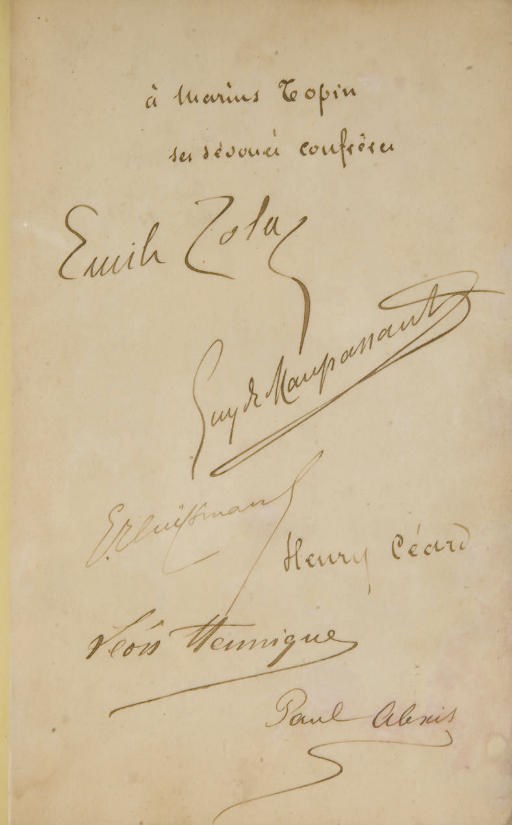 à Marius Topin
ses dévoués confrères
Emile Zola
Guy de Maupassant
JK Huÿsmans
Henry Céard
Léon Hennique
Paul Alexis